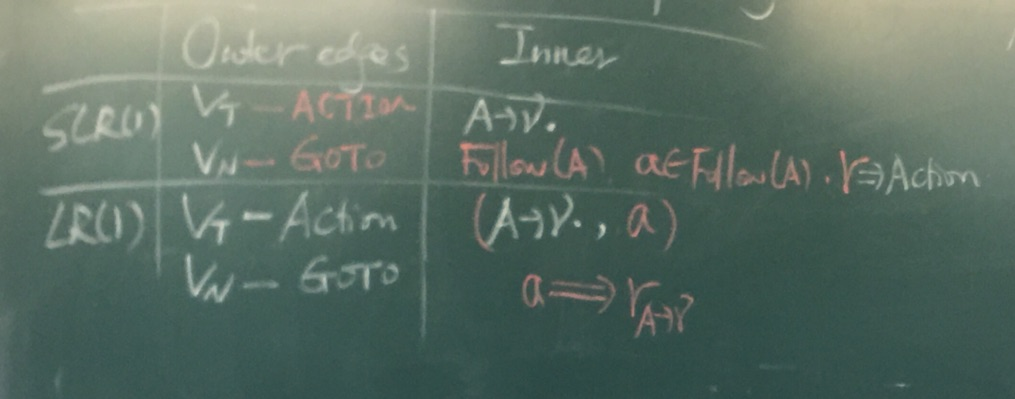 Outer edges Inner
SLR(1) V_T - ACTION A→γ.
V_N - GOTO Follow(A) a∈Follow(A). r⇒Action
LR(1) V_T - Action (A→γ., a)
V_N - GOTO
a⟹r_{A→γ}